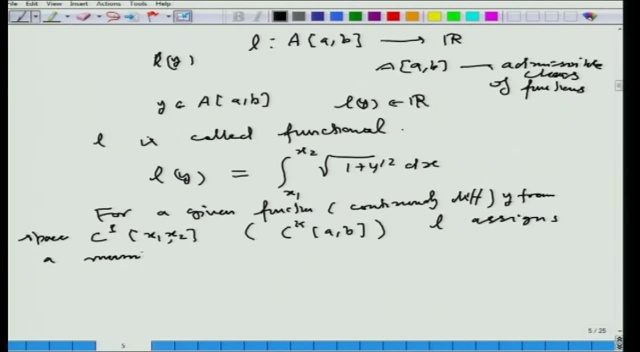 File Edit View Insert Actions Tools Help
l(y) l : A[a,b] → ℝ
A[a,b] — admissible class of functions
y ∈ A[a,b] l(y) ∈ ℝ
l is called functional.
l(y) = ∫_{x₁}^{x₂} √(1+y'²) dx
For a given function (continuously diff) y from
space C¹[x₁,x₂] ( Cᵏ[a,b] ) l assigns
a num
5 / 25
5